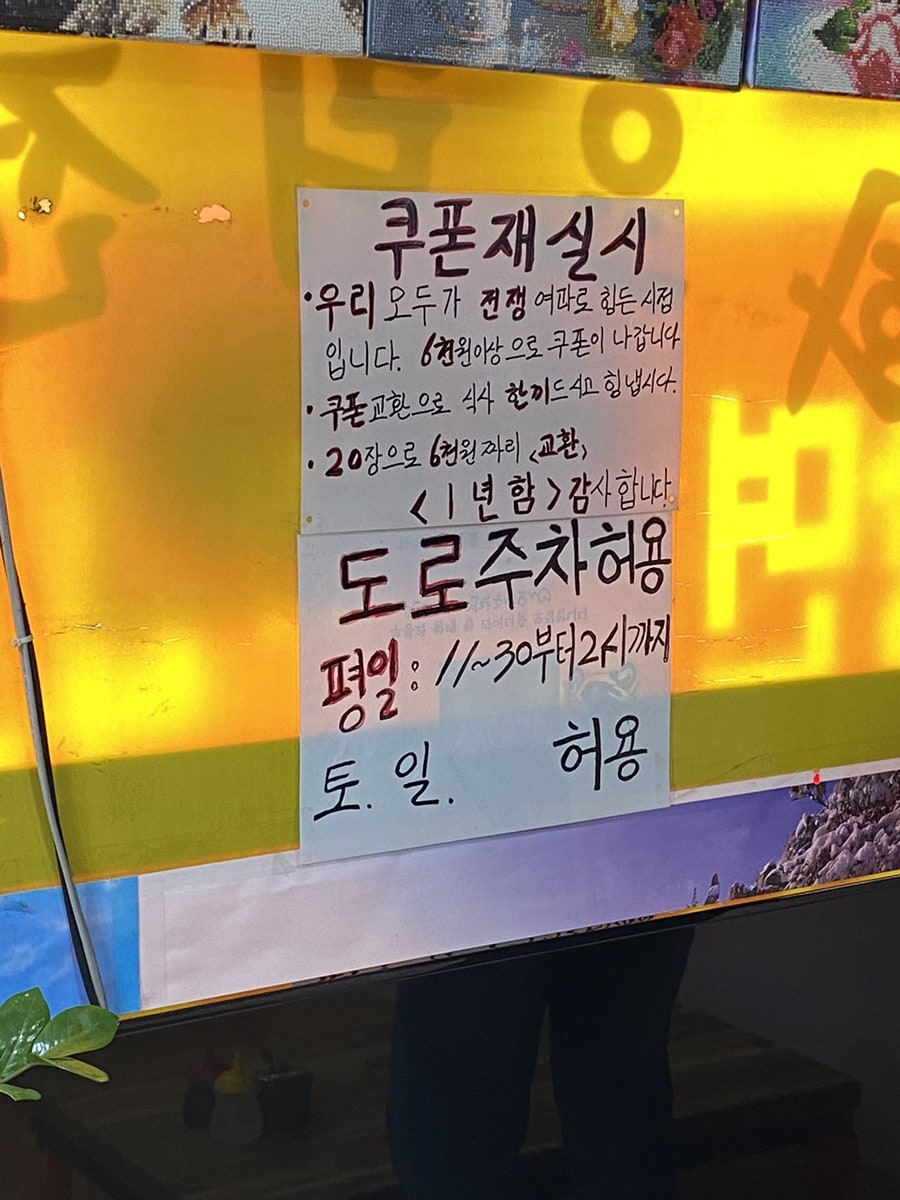 쿠폰재실시
•우리 모두가 전쟁 여파로 힘든 시점
입니다. 6천원이상으로 쿠폰이 나갑니다
•쿠폰교환으로 식사 한끼드시고 힘냅시다.
•20장으로 6천원짜리 <교환>
<1년함>감사합니다.
도로주차허용
평일: 11~30부터2시까지
토. 일. 허용